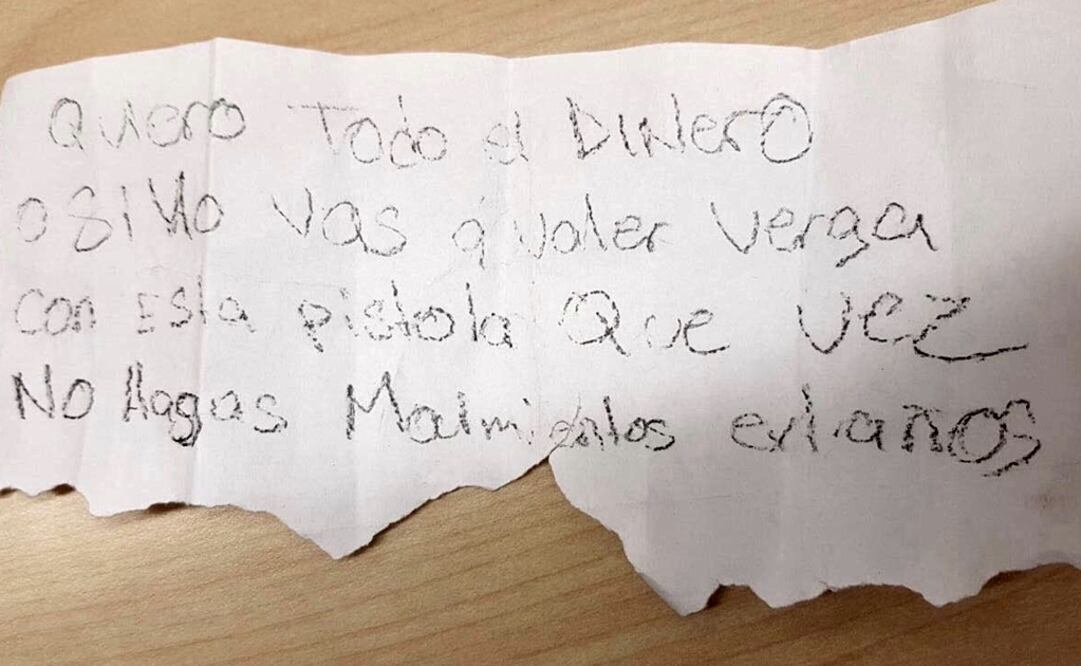 Quiero Todo el DINerO
o SI No vas a valer verga
con Esta pistola Que vez
No Hagas Malmientos extraños